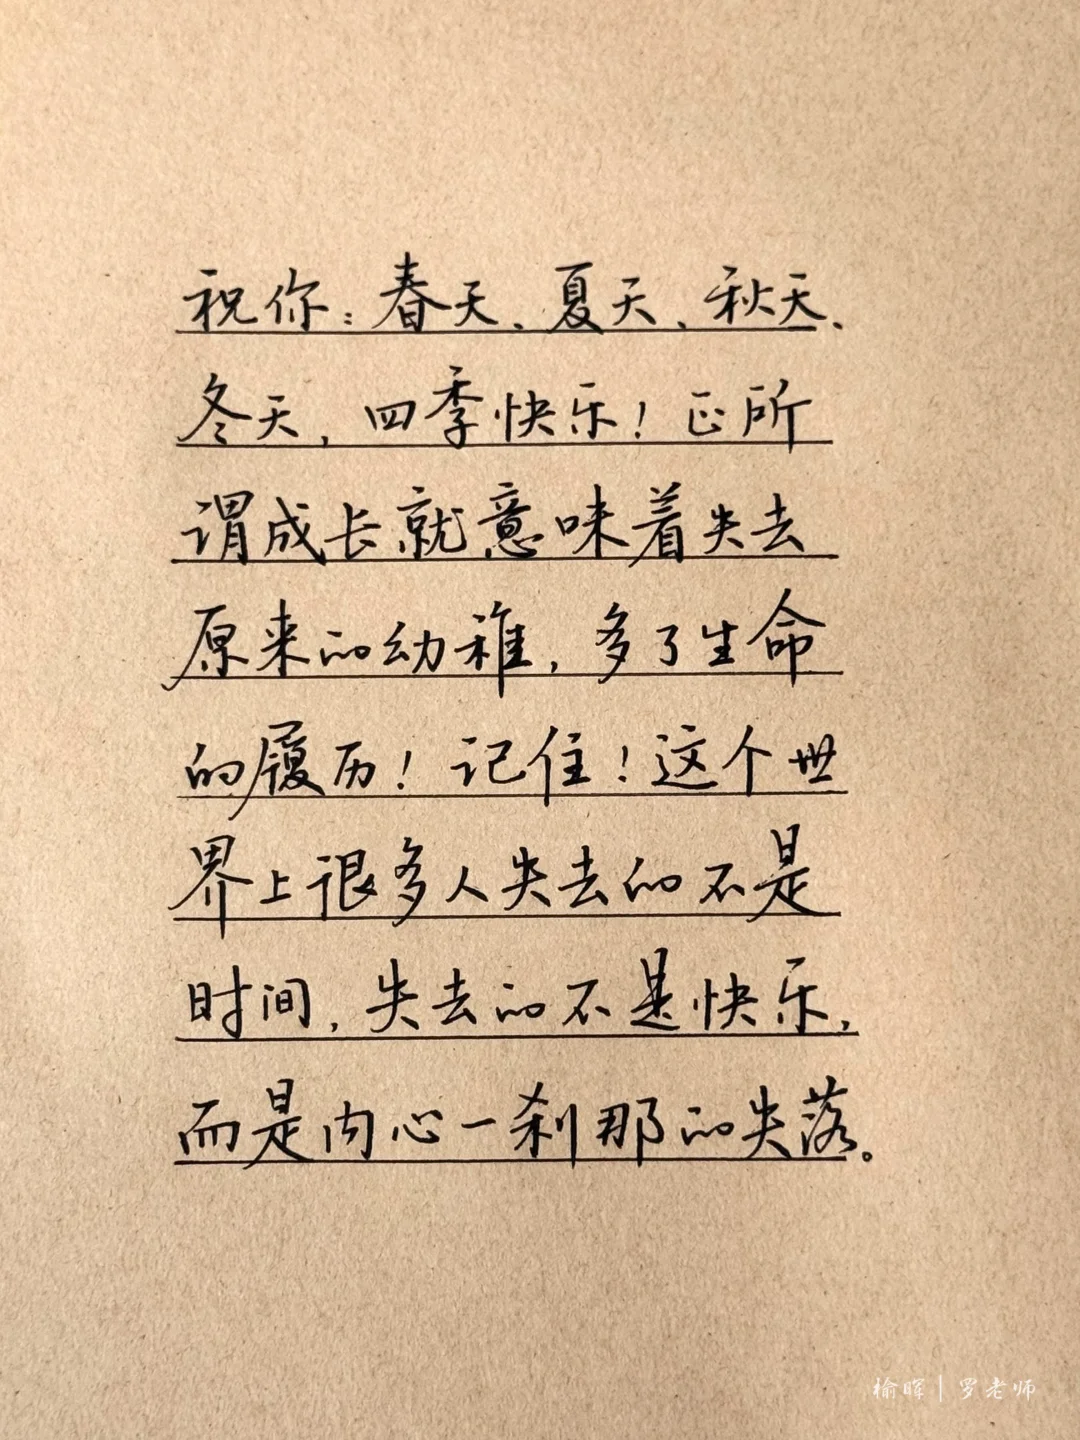 祝你：春天、夏天、秋天、
冬天，四季快乐！正所
谓成长就意味着失去
原来的幼稚，多了生命
的履历！记住！这个世
界上很多人失去的不是
时间，失去的不是快乐，
而是内心一刹那的失落。
榆晖丨罗老师